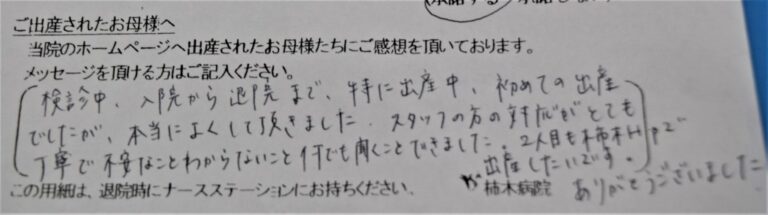 承諾する
ご出産されたお母様へ
当院のホームページへ出産されたお母様たちにご感想を頂いております。
メッセージを頂ける方はご記入ください。
検診中、入院から退院まで、特に出産中、初めての出産
でしたが、本当によくして頂きました。スタッフの方の対応がとても
丁寧で不安なことわからないこと何でも聞くことできました。2人目も柿木HPで
出産したいです。
この用紙は、退院時にナースステーションにお持ちください。
柿木病院
ありがとうございました